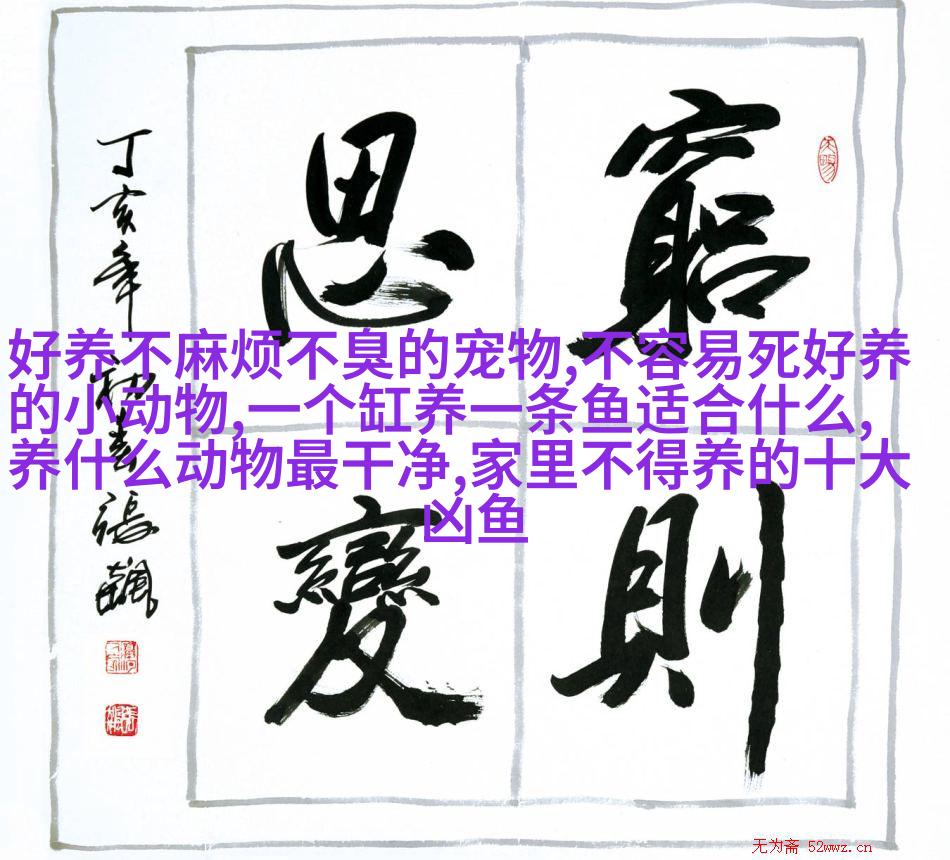 窮則
思變
丁亥年初春張飆
好养不麻烦不臭的宠物,不容易死好养
的小动物,一个缸养一条鱼适合什么,
养什么动物最干净,家里不得养的十大
凶鱼
无为斋 52wwz.cn